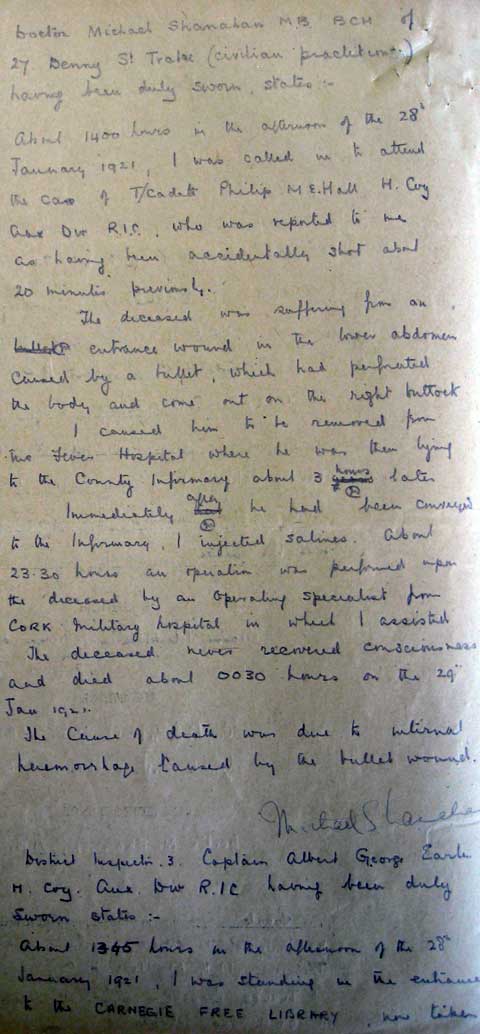 Doctor Michael Shanahan M.B. BCH of
27 Denny St Tralee (civilian practitioner)
having been duly sworn, states :-
About 1400 hours in the afternoon of the 28th
January 1921, I was called in to attend
the case of T/Cadet Philip M E. Hall H. Coy
Aux Div R.I.C., who was reported to me
as having been accidentally shot about
20 minutes previously.
The deceased was suffering from an
entrance wound in the lower abdomen
caused by a bullet, which had perforated
the body and come out on the right buttock
I caused him to be removed from
the Fever Hospital where he was then lying
to the County Infirmary about 3 hours later
Immediately after he had been conveyed
to the Infirmary, I injected salines. About
23.30 hours an operation was performed upon
the deceased by an Operating Specialist from
CORK Military Hospital in which I assisted
The deceased never recovered consciousness
and died about 0030 hours on the 29th
Jan 1921.
The Cause of death was due to internal
haemorrhage caused by the bullet wound.
Michael Shanahan
District Inspector. 3. Captain Albert George Earle
H. Coy. Aux. Div R.I.C having been duly
sworn states :-
About 1345 hours in the afternoon of the 28th
January 1921, I was standing in the entrance
to the CARNEGIE FREE LIBRARY, now taken